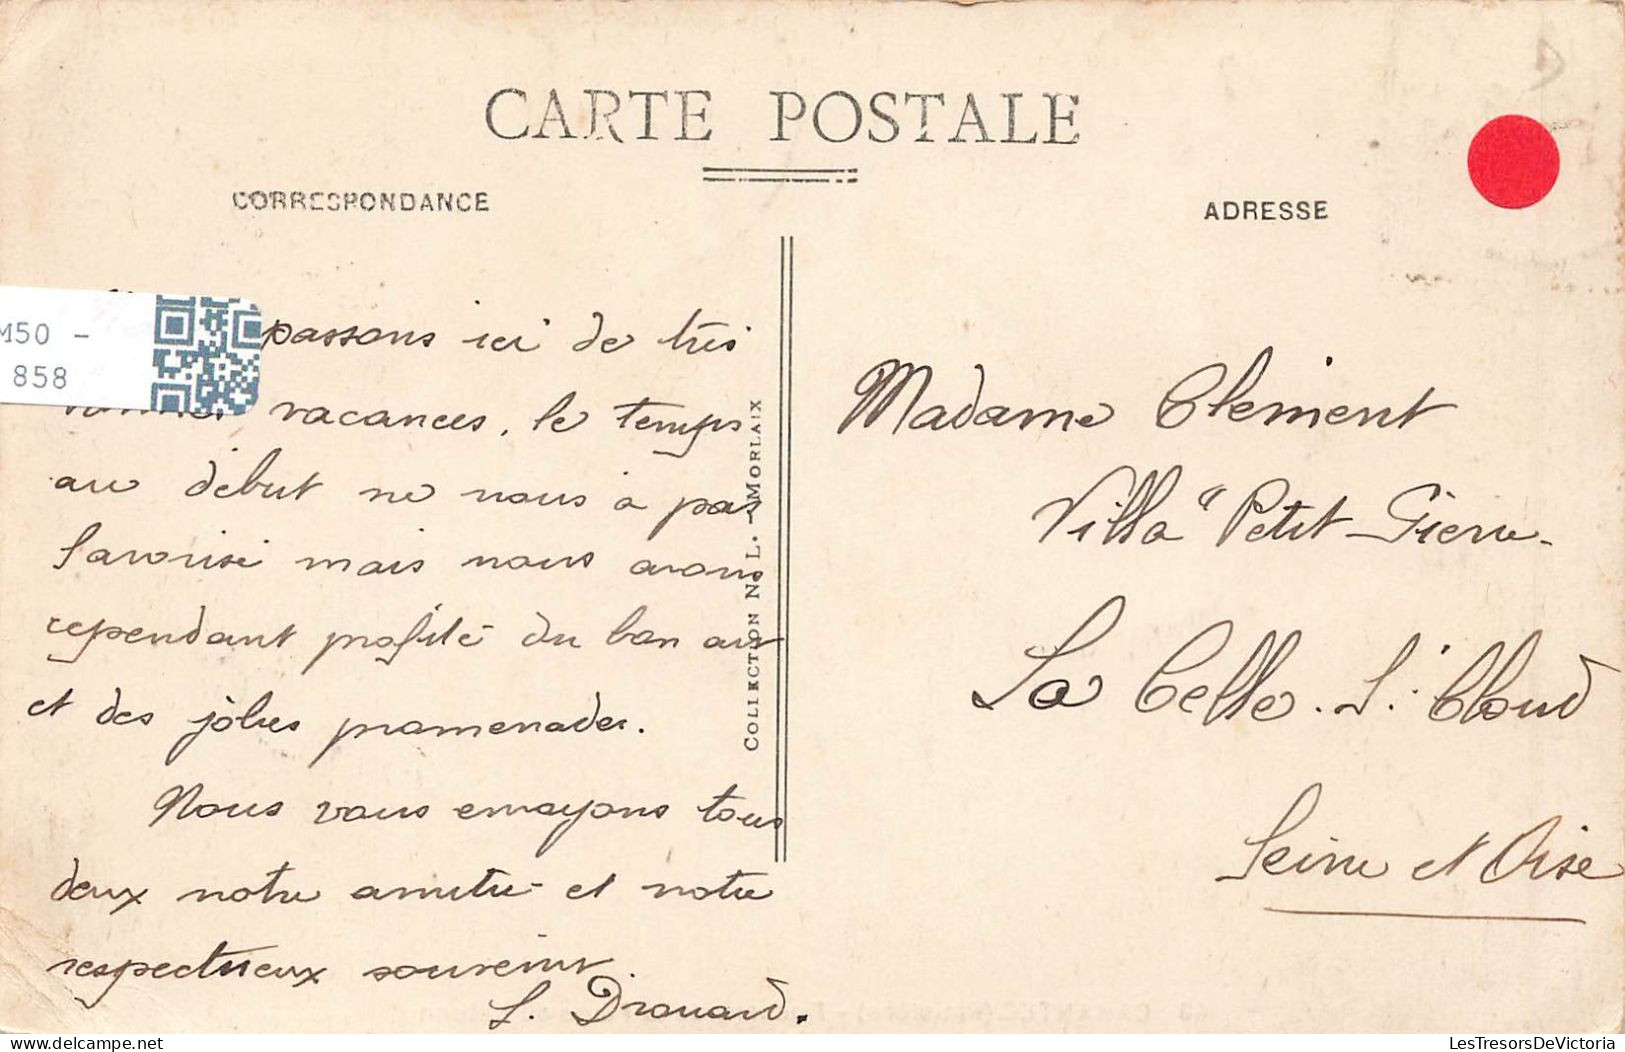 CARTE POSTALE
CORRESPONDANCE
ADRESSE
M50 -
858
passons ici de très
vacances, le temps
au début ne nous a pas
favorisé mais nous avons
cependant profité du bon air
et des jolies promenades.
Nous vous envoyons tous
deux notre amitié et notre
respectueux souvenir
Drouard.
COLLECTION N. L. - MORLAIX
Madame Clément
Villa "Petit-Pierre
La Celle. St. Cloud
Seine et Oise
LesTresorsDeVictoria - delcampe.net